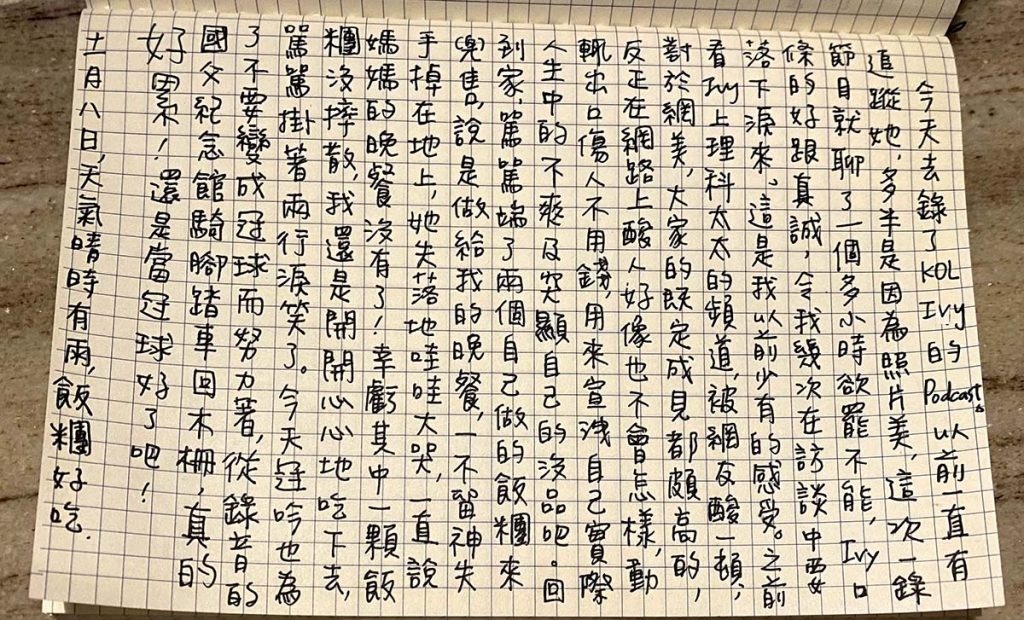 今天去錄了KOL Ivy的Podcast。以前一直有
追蹤她，多半是因為照片美，這次一錄
節目就聊了一個多小時欲罷不能，Ivy口
條的好跟真誠，令我幾次在訪談中要
落下淚來。這是我以前少有的感受。之前
看Ivy上理科太太的頻道，被網友酸一頓，
對於網美，大家的既定成見都頗高的，
反正在網路上酸人好像也不會怎樣，動
輒出口傷人不用錢，用來宣洩自己實際
人生中的不爽及突顯自己的沒品吧。回
到家，罵罵端了兩個自己做的飯糰來
兜售，說是做給我的晚餐，一不留神失
手掉在地上，她失落地哇哇大哭，一直說
媽媽的晚餐沒有了！幸虧其中一顆飯
糰沒摔散，我還是開開心心地吃下去，
罵罵掛著兩行淚笑了。今天冠吟也為
了不要變成冠球而努力著，從錄音的
國父紀念館騎腳踏車回木柵，真的
好累！還是當冠球好了吧！
十一月八日，天氣晴時有雨，飯糰好吃.